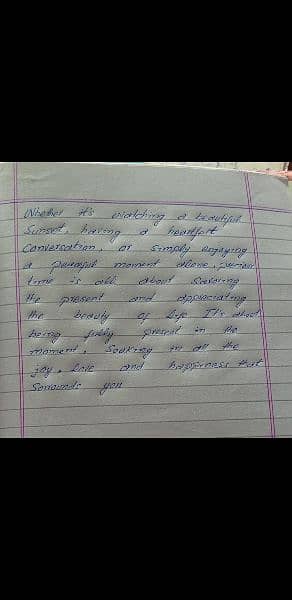 Whether it's watching a beautiful
Sunset, having a heartfelt
Conversation, or simply enjoying
a peaceful moment alone,
time is all about Savoring
the present and appreciating
the beauty of Life It's about
being fully present in the
moment, Soaking in all the
joy, Love and happiness that
Sorrounds you